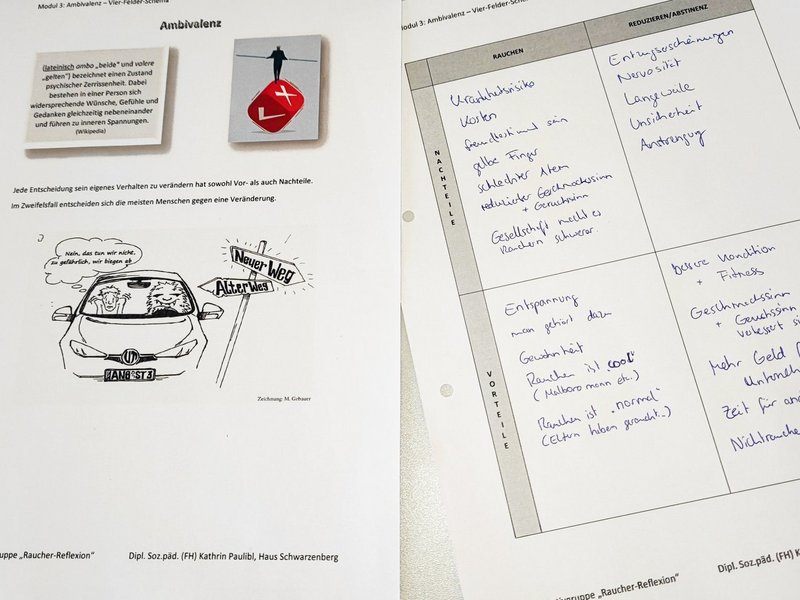 Modul 3: Ambivalenz – Vier-Felder-Schema
Ambivalenz
(lateinisch ambo „beide" und valere
„gelten") bezeichnet einen Zustand
psychischer Zerrissenheit. Dabei
bestehen in einer Person sich
widersprechende Wünsche, Gefühle und
Gedanken gleichzeitig nebeneinander
und führen zu inneren Spannungen.
(Wikipedia)
Jede Entscheidung sein eigenes Verhalten zu verändern hat sowohl Vor- als auch Nachteile.
Im Zweifelsfall entscheiden sich die meisten Menschen gegen eine Veränderung.
Nein, das tun wir nicht,
zu gefährlich, wir biegen ab
Neuer Weg
Alter Weg
ANG ST 3
Zeichnung: M. Gebauer
uppe „Raucher-Reflexion" Dipl. Soz.päd. (FH) Kathrin Paulibl, Haus Schwarzenberg
Modul 3: Ambivalenz – Vier-Felder-Schema
RAUCHEN
REDUZIEREN/ABSTINENZ
NACHTEILE
Krankheitsrisiko
Kosten
fremdbestimmt sein
gelbe Finger
schlechter Atem
reduzierter Geschmackssinn
+ Geruchssinn
Gesellschaft macht es
Rauchern schwerer.
Entzugserscheinungen
Nervosität
Langeweile
Unsicherheit
Anstrengung
VORTEILE
Entspannung
man gehört dazu
Gewohnheit
Rauchen ist „cool"
(Malboro mann etc.)
Rauchen ist „normal"
(Eltern haben geraucht..)
bessere Kondition
+ Fitness
Geschmackssinn
+ Geruchssinn
verbessert si
Mehr Geld f
Unterneh
Zeit für and
Nichtrauche
gruppe „Raucher-Reflexion" Dipl. Soz.päd. (FH) K